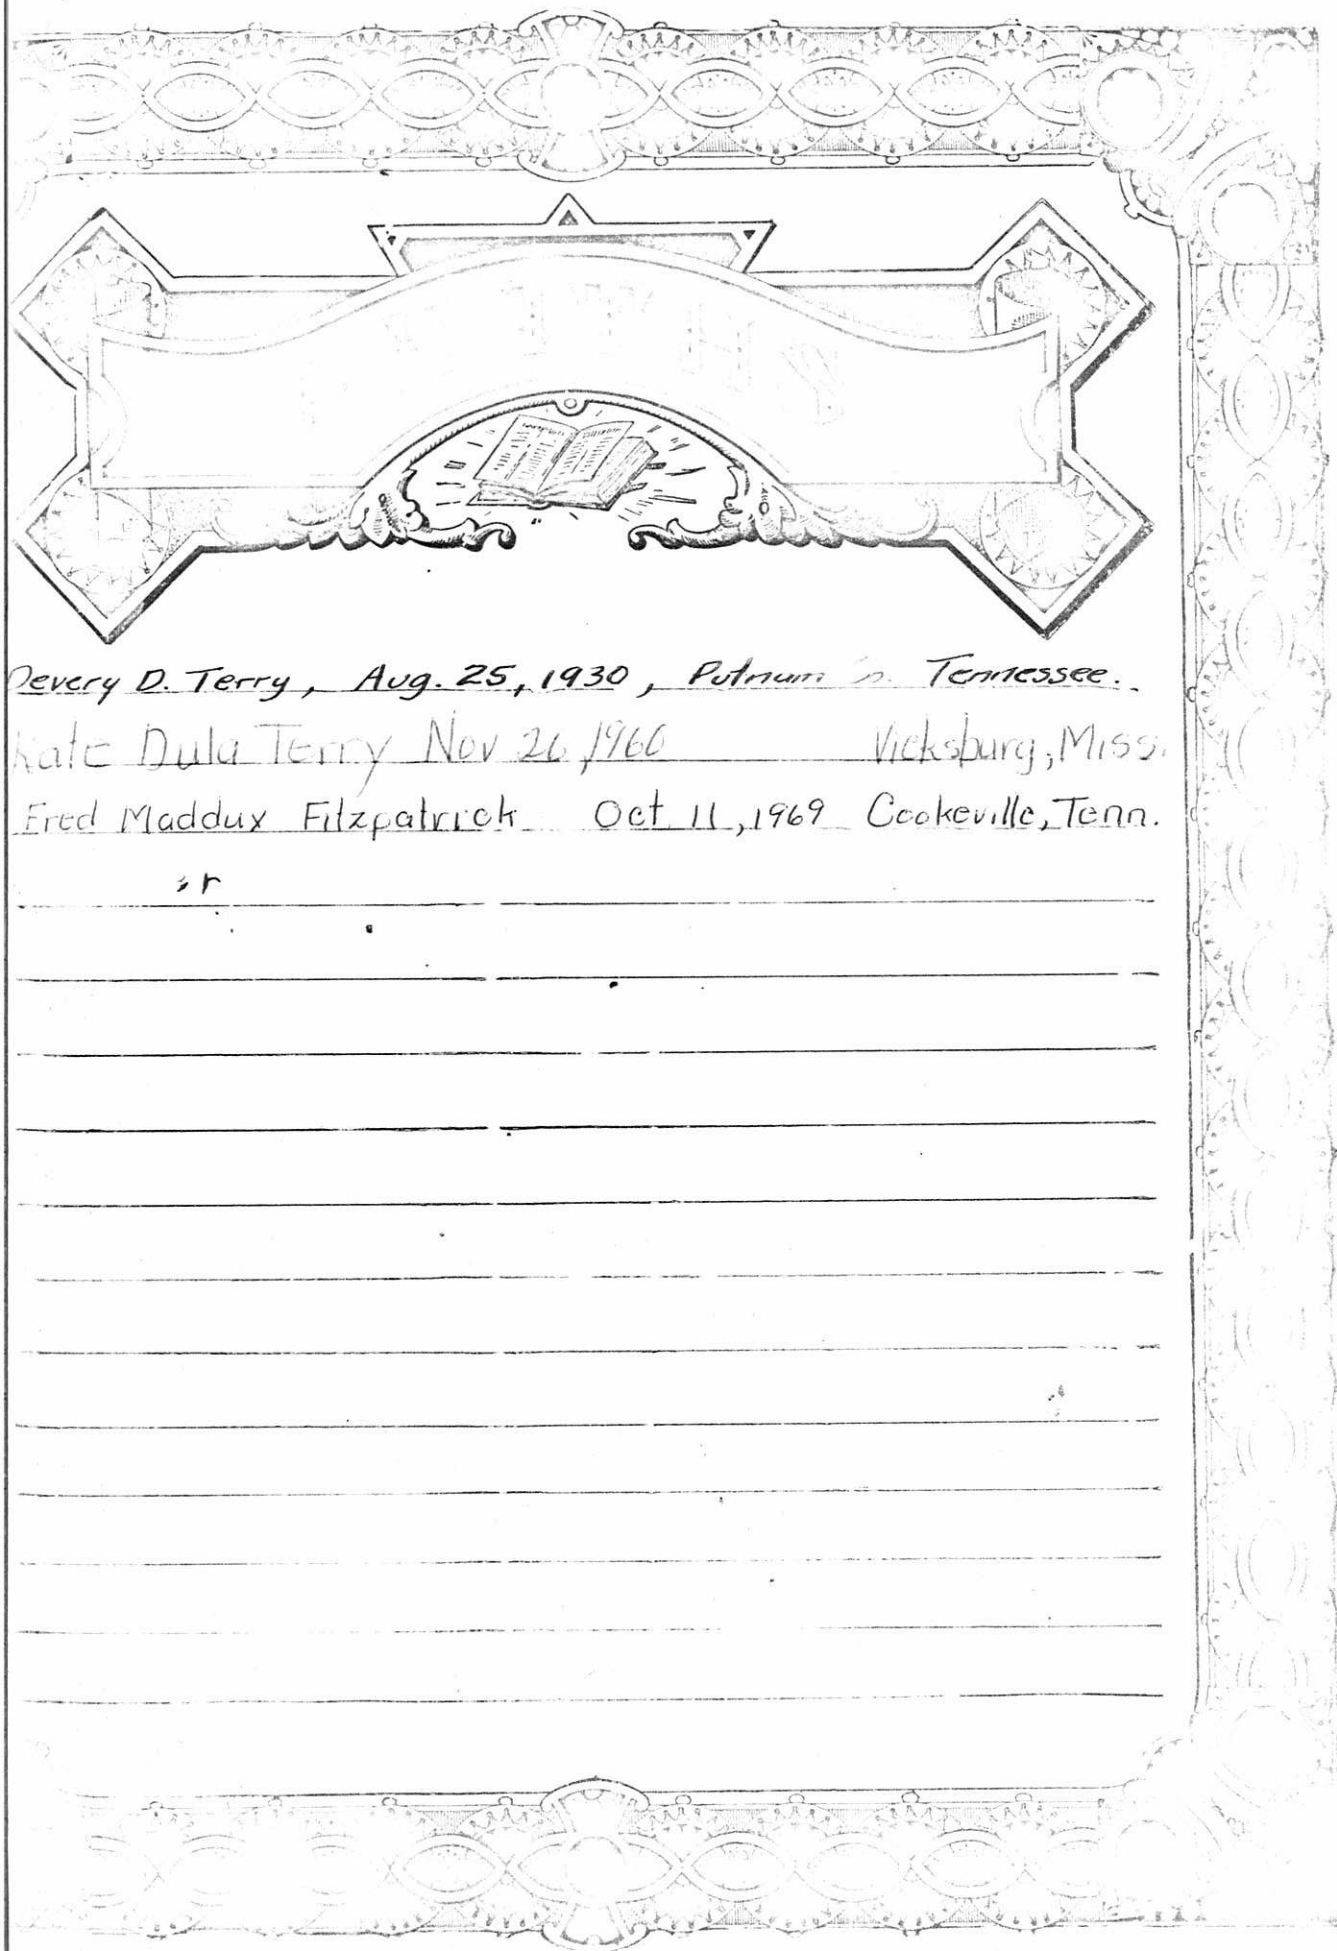 Devery D. Terry, Aug. 25, 1930, Putnam Tennessee.
Kate Dula Terry Nov 26, 1960 Vicksburg, Miss.
Fred Maddux Fitzpatrick Oct 11, 1969 Cookeville, Tenn.